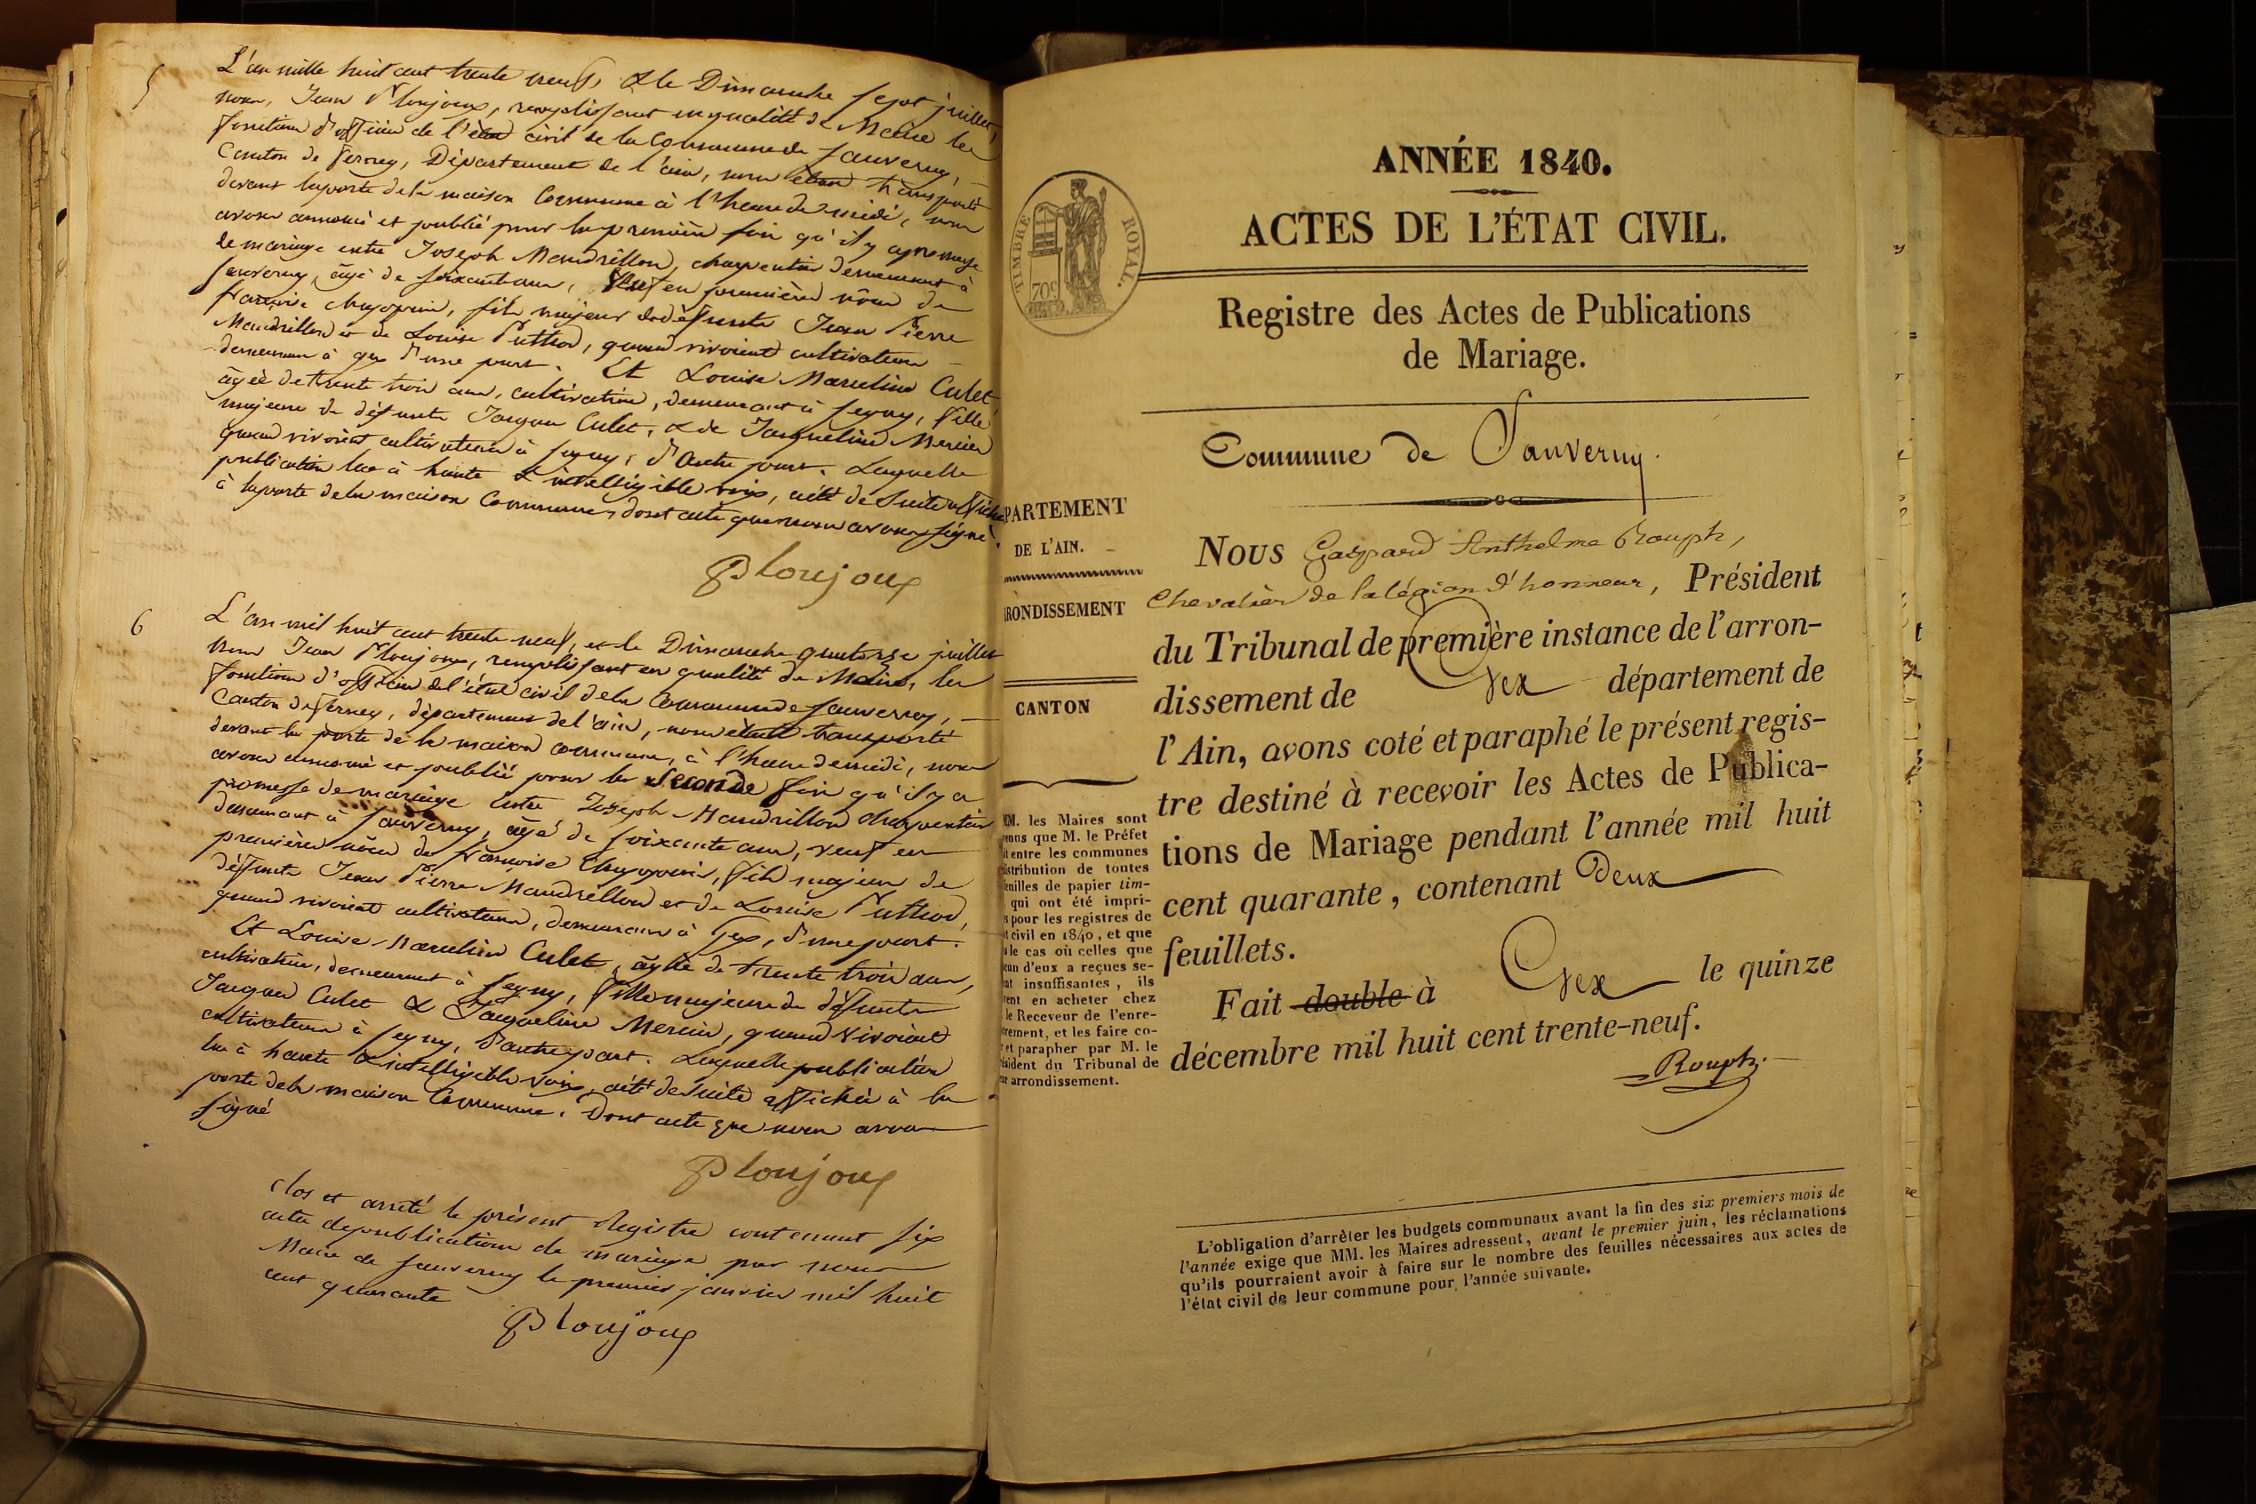 5
L'an mille huit cent trente neuf, & le Dimanche sept juillet,
nous, Jean Ploujoux, remplissant en qualité de Maire les
fonctions d'officier de l'état civil de la Commune de Sauverny,
Canton de Ferney, Département de l'ain, nous étant transporté
devant la porte de la maison Commune à l'heure de midi, nous
avons annoncé et publié pour la première fois qu'il y a promesse
de mariage entre Joseph Mandrillon, charpentier demeurant à
Sauverny, âgé de soixante ans, Veuf en première nôces de
françoise, fils majeur de défunts Jean Pierre
Mandrillon et de Louise Puthod, quand vivoient cultivateurs
demeurans à gex d'une part. Et Louise Marceline Culet
âgée de trente trois ans, cultivatrice, demeurant à Segny, fille
majeure de défunts Jacques Culet, & de Jacqueline Mercier
quand vivoient cultivateurs à Segny, d'autre part. Laquelle
publication lue à haute & intelligible voix, a été de suite affichée
à la porte de la maison Commune, dont acte que nous avons signé.
Ploujoux
6
L'an mil huit cent trente neuf, et le Dimanche quatorze juillet
nous Jean Ploujoux, remplissant en qualité de Maire, les
fonctions d'officier de l'état civil de la Commune de Sauverny,
Canton de Ferney, département de l'ain, nous étant transporté
devant la porte de la maison commune, à l'heure de midi, nous
avons annoncé et publié pour la seconde fois qu'il y a
promesse de mariage entre Joseph Mandrillon charpentier
demeurant à Sauverny, âgé de soixante ans, veuf en
première nôces de françoise, fils majeur de
défunts Jean Pierre Mandrillon et de Louise Puthod,
quand vivoient cultivateurs, demeurans à Gex, d'une part.
Et Louise Marceline Culet, âgée de trente trois ans,
cultivatrice, demeurant à Segny, fille majeure de défunts
Jacques Culet & Jacqueline Mercier, quand vivoient
cultivateurs à Segny, d'autre part. Laquelle publication
lue à haute & intelligible voix, a été de suite affichée à la
porte de la maison Commune. Dont acte que nous avons
signé
Ploujoux
Clos et arrêté le présent Registre contenant six
actes de publications de mariage par nous
Maire de Sauverny le premier janvier mil huit
cent quarante
Ploujoux
ANNÉE 1840.
TIMBRE ROYAL.
70c
ACTES DE L'ÉTAT CIVIL.
Registre des Actes de Publications
de Mariage.
Commune de Sauverny.
PARTEMENT
DE L'AIN.
RONDISSEMENT
CANTON
MM. les Maires sont
que M. le Préfet
entre les communes
distribution de toutes
feuilles de papier tim-
qui ont été impri-
pour les registres de
civil en 1840, et que
le cas où celles que
d'eux a reçues se-
insuffisantes, ils
en acheter chez
le Receveur de l'enre-
, et les faire co-
et parapher par M. le
du Tribunal de
arrondissement.
NOUS Gaspard Anthelme Rouph,
Chevalier de la légion d'honneur, Président
du Tribunal de première instance de l'arron-
dissement de Gex département de
l'Ain, avons coté et paraphé le présent regis-
tre destiné à recevoir les Actes de Publica-
tions de Mariage pendant l'année mil huit
cent quarante, contenant Deux
feuillets.
Fait double à Gex le quinze
décembre mil huit cent trente-neuf.
Rouph.
L'obligation d'arrêter les budgets communaux avant la fin des six premiers mois de
l'année exige que MM. les Maires adressent, avant le premier juin, les réclamations
qu'ils pourraient avoir à faire sur le nombre des feuilles nécessaires aux actes de
l'état civil de leur commune pour l'année suivante.